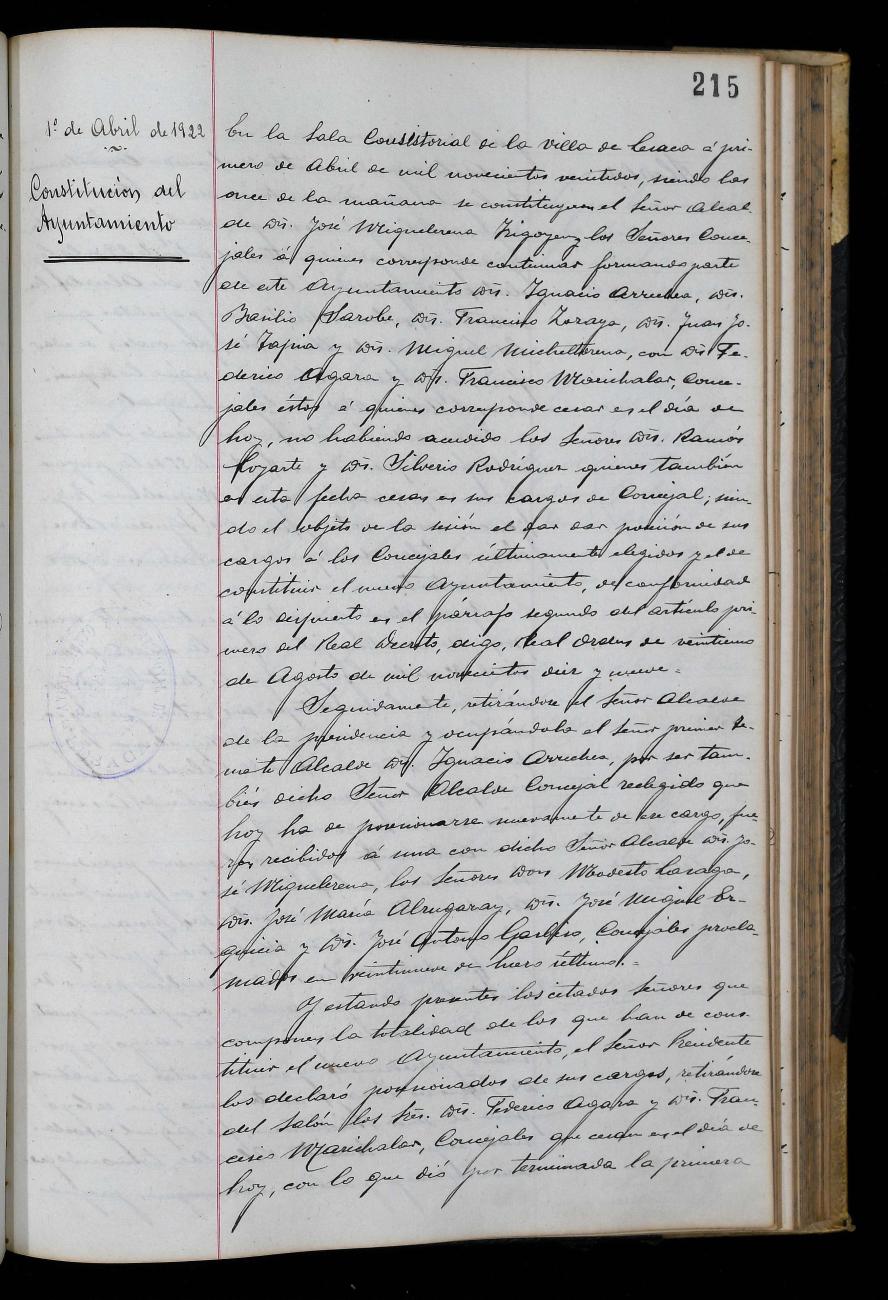 215
1º de Abril de 1922
Constitución del
Ayuntamiento
En la Sala Consistorial de la villa de Lesaca á pri-
mero de Abril de mil novecientos veintidos, siendo las
once de la mañana se constituyeron el Señor Alcal-
de Dn. José Miguelerena Irigoyen y los Señores Conce-
jales á quienes corresponde continuar formando parte
de este Ayuntamiento Dn. Ignacio Arrechea, Dn.
Basilio Sarobe, Dn. Francisco Zoraya, Dn. Juan Jo-
sé Tapia y Dn. Miguel Michelterena, con Dn. Fe-
derico Agara y Dn. Francisco Marichalar, Conce-
jales éstos á quienes corresponde cesar en el día de
hoy, no habiendo acudido los Señores Dn. Ramón
Loyarte y Dn. Silverio Rodríguez quienes también
en esta fecha cesan en sus cargos de Concejal; sien-
do el objeto de la sesión el dar dar posesión de sus
cargos á los Concejales últimamente elegidos y el de
constituir el nuevo Ayuntamiento, de conformidad
á lo dispuesto en el párrafo segundo del artículo pri-
mero del Real Decreto, digo, Real Orden de veintiuno
de Agosto de mil novecientos diez y nueve.=
Seguidamente, retirándose el Señor Alcalde
de la presidencia y ocupándola el señor primer te-
niente Alcalde Dn. Ignacio Arrechea, por ser tam-
bién dicho Señor Alcalde Concejal reelegido que
hoy ha de posesionarse nuevamente de ese cargo, fue-
ron recibidos á una con dicho Señor Alcalde Dn. Jo-
sé Miguelerena, los Señores Don Modesto Lasaga,
Dn. José María Alzugaray, Dn. José Miguel Er-
guicia y Dn. José Antonio Gardiso, Concejales procla-
mados en veintinueve de Enero último.=
Y estando presentes los citados señores que
componen la totalidad de los que han de cons-
tituir el nuevo Ayuntamiento, el Señor Presidente
los declaró posesionados de sus cargos, retirándose
del Salón los Sres. Dn. Federico Agara y Dn. Fran-
cisco Marichalar, Concejales que cesan en el día de
hoy, con lo que dió por terminada la primera